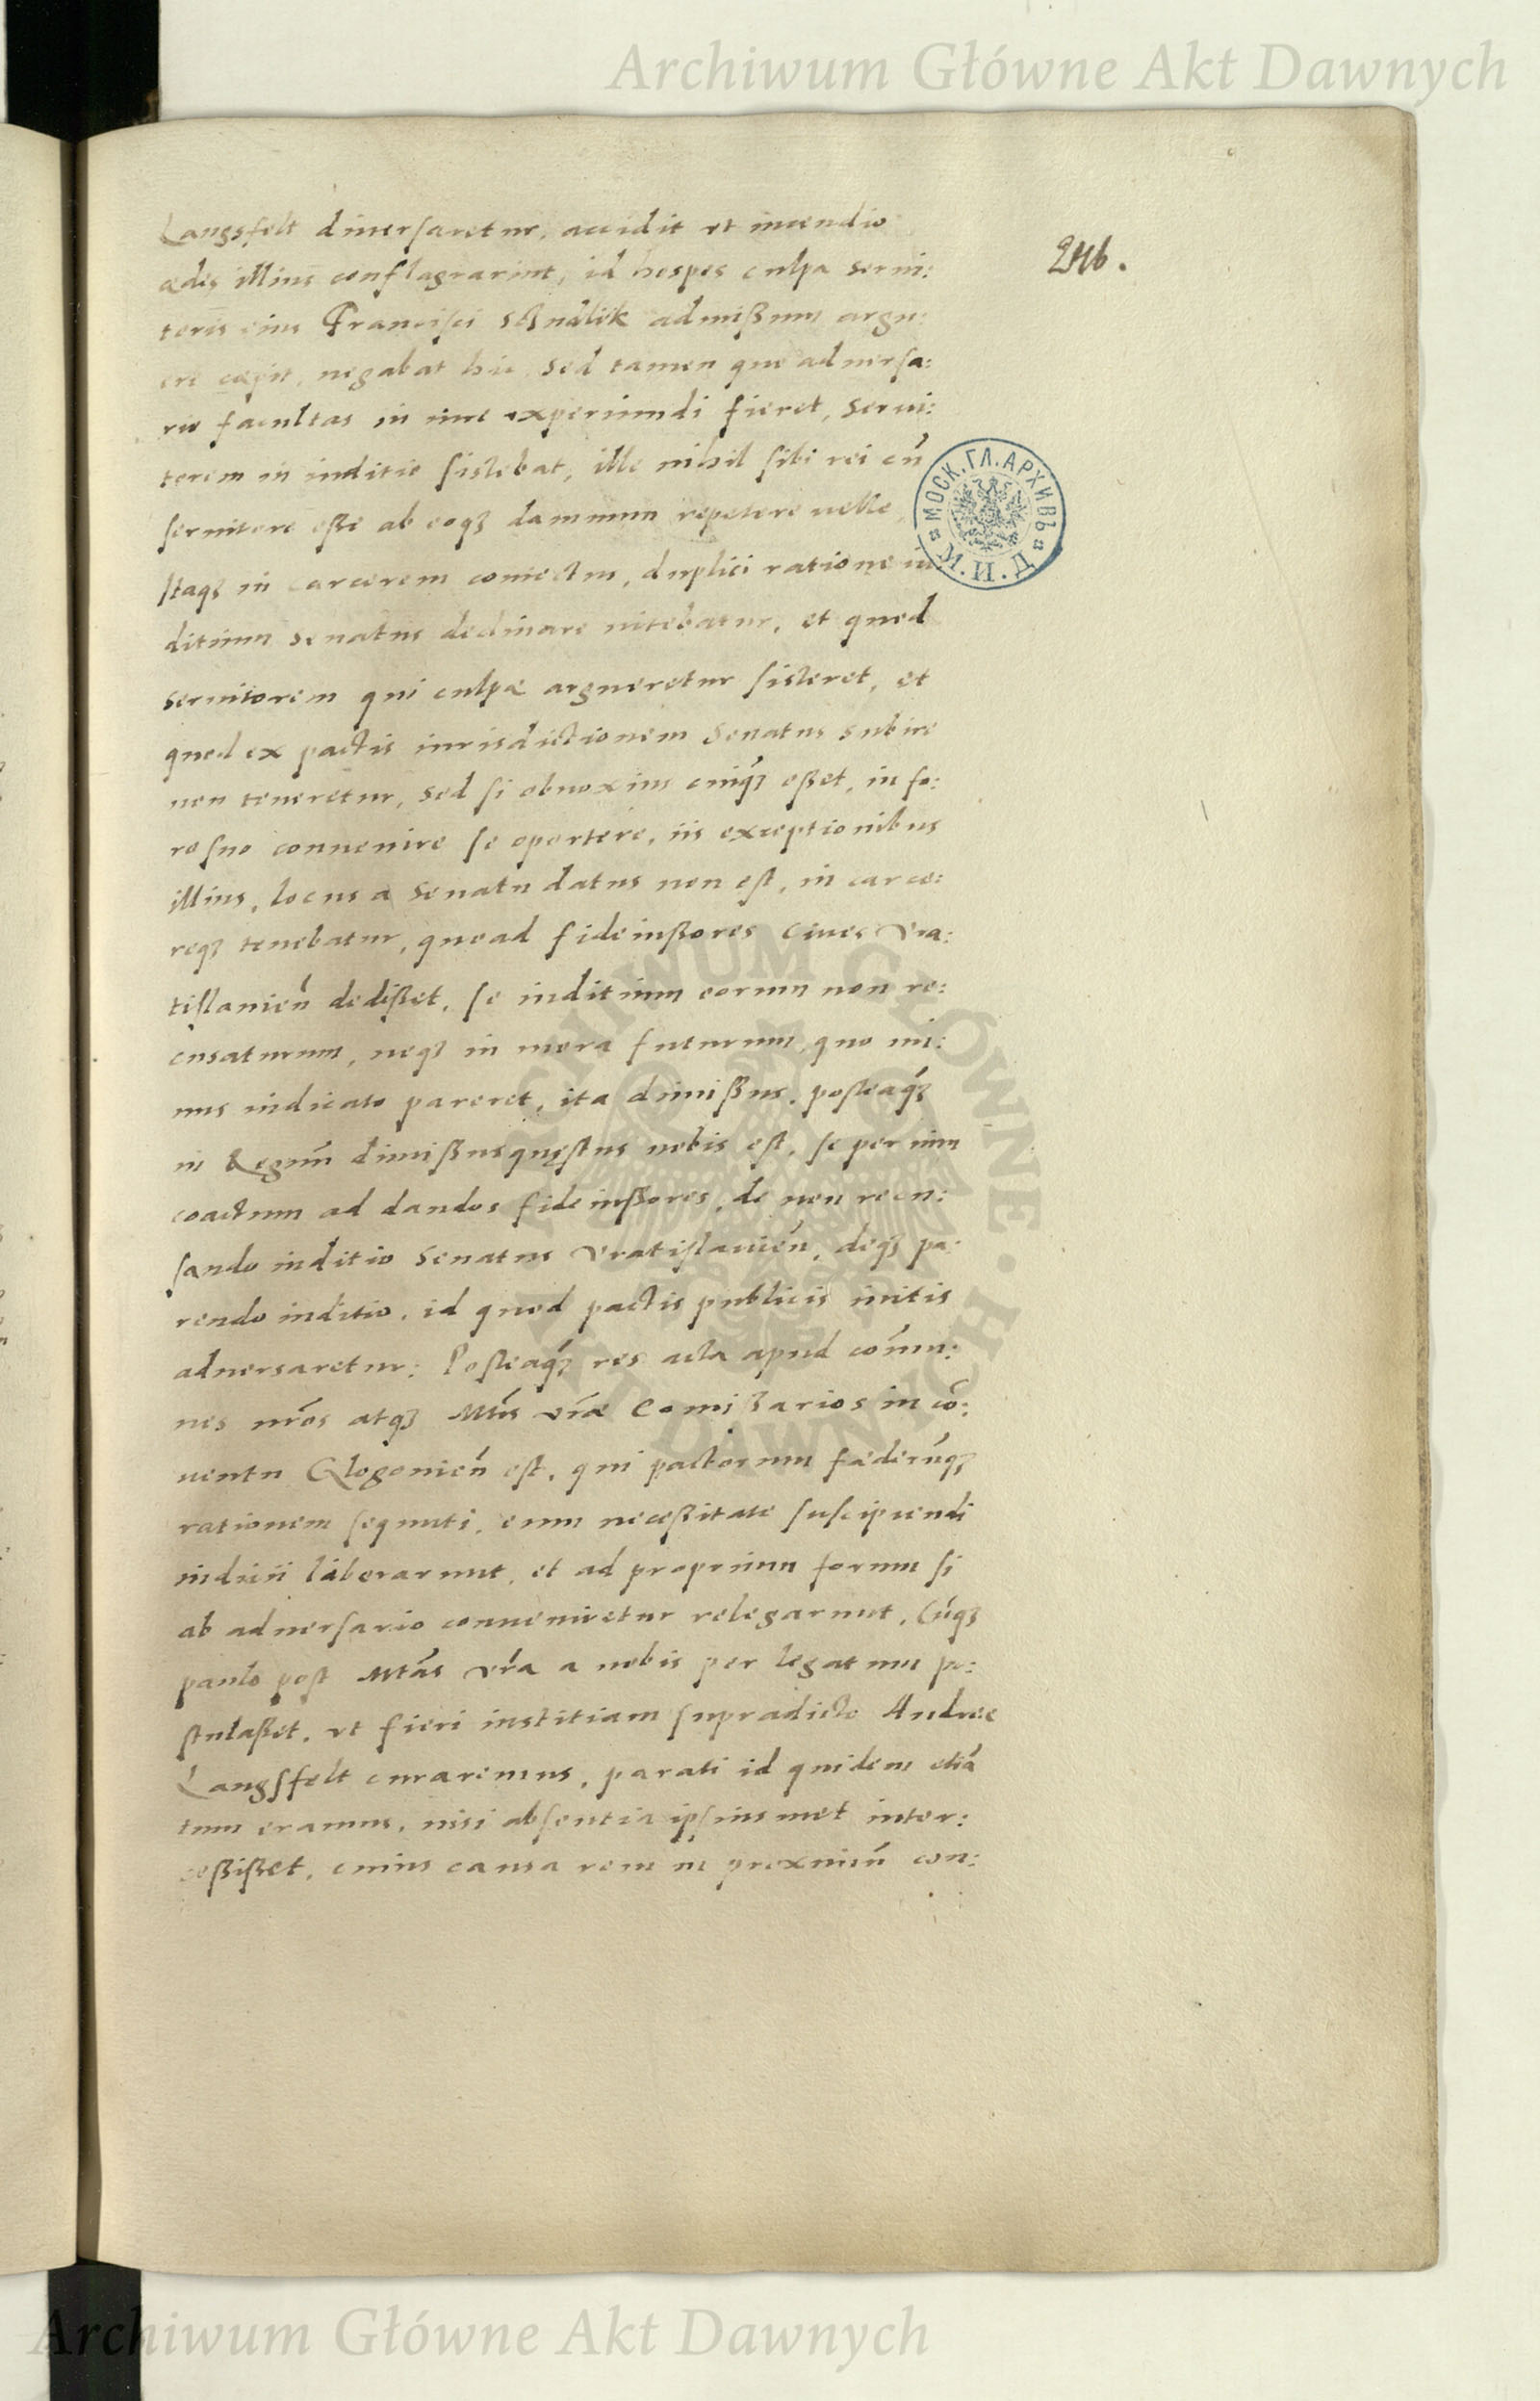 Archiwum Główne Akt Dawnych
246.
Langsfelt diuersaretur, accidit vt incendio
ædes illius conflagrarint, id hospes culpa serui:
toris eius Francisci admißum argu:
ere cœpit, negabat hic, sed tamen quo aduersa:
rio facultas in iure experiundi fieret, serui:
torem in iuditio sistebat, ille nihil sibi rei cū
seruitore eße ab eoqȝ damnum repetere uelle,
Itaqȝ in carcerem coniectus, duplici ratione iu
ditium senatus declinare nitebatur, et quod
seruitorem qui culpæ argueretur sisteret, et
quod ex pactis iurisdictionem Senatus subire
non teneretur, sed si obnoxius cuiqȝ eßet, in fo:
ro suo conuenire se oportere, iis exceptionibus
illius, locus a Senatu datus non est, in carce:
reqȝ tenebatur, quoad fideiußores Ciues Vra:
tislauień dedißet, se iuditium eorum non re:
cusaturum, neqȝ in mora futurum, quo mi:
nus iudicato pareret, ita dimißus, posteaqȝ
in Regnū dimißus quęstus nobis est, se per uim
coactum ad dandos fideiußores, de non recu:
sando iuditio Senatus Vratislauień, deqȝ pa:
rendo iuditio, id quod pactis publicis initis
aduersaretur: Posteaqȝ res acta apud com̄u:
nes nr̄os atqȝ Mtīs vr̄æ Comißarios in cō:
uentu Glogouień est, qui pactorum fœderūqȝ
rationem sequuti, eum neceßitate suscipiendi
iudicii liberarunt, et ad proprium forum si
ab aduersario conueniretur relegarunt, Cūqȝ
paulo post Mtās vr̄a a nobis per legatum po:
stulaßet, vt fieri iustitiam supradicto Andreę
Langsfelt curaremus, parati id quidem etiā
tum eramus, nisi absentia ipsius met inter:
ceßißet, cuius causa rem in proximū con:
МОСК.ГЛ.АРХИВЪ
М.И.Д.
ARCHIWUM GŁÓWNE AKT DAWNYCH
Archiwum Główne Akt Dawnych